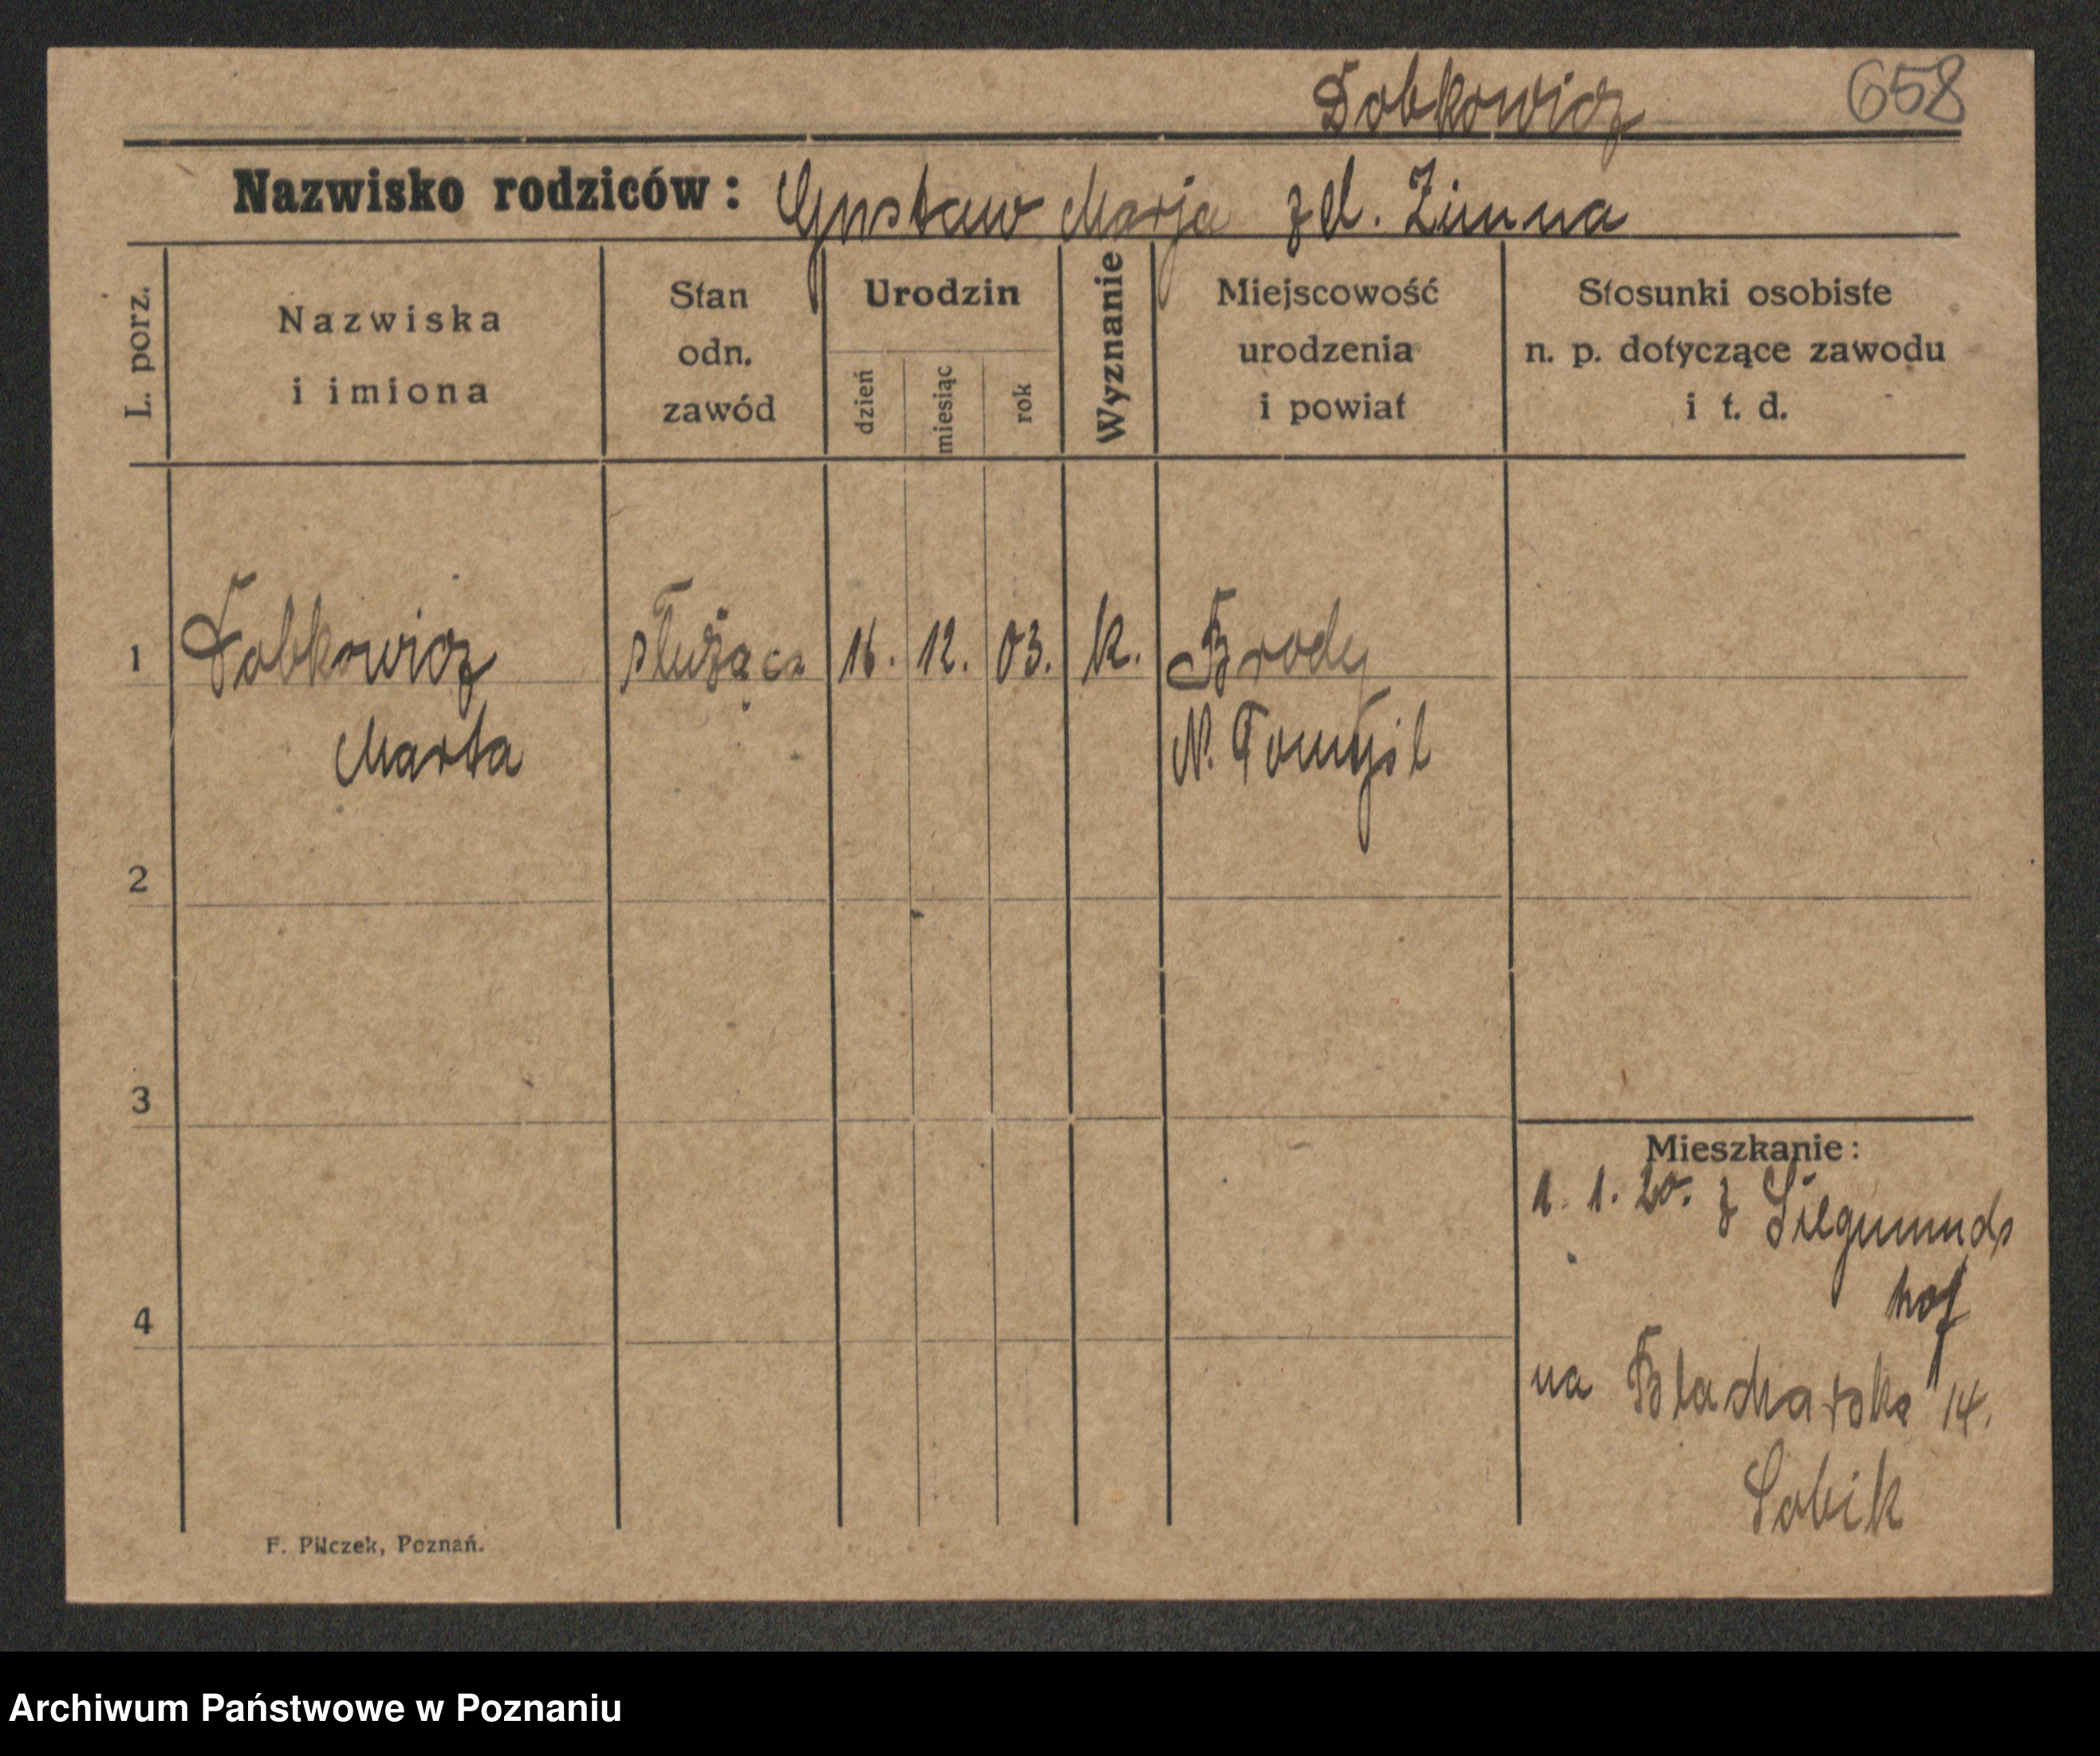 Dobkowicz 658
Nazwisko rodziców: Gustaw Marja z d. Zimna
L. porz.
Nazwiska i imiona
Stan odn. zawód
Urodzin
dzień
miesiąc
rok
Wyznanie
Miejscowość urodzenia i powiat
Stosunki osobiste n. p. dotyczące zawodu i t. d.
1 Dobkowicz służąca 16. 12. 03. k. Brody
Marta N. Tomyśl
2
3
Mieszkanie:
1. 1. 20. z Siegmunds
hof
4
na Blacharska 14.
Sobik
F. Pilczek, Poznań.
Archiwum Państwowe w Poznaniu